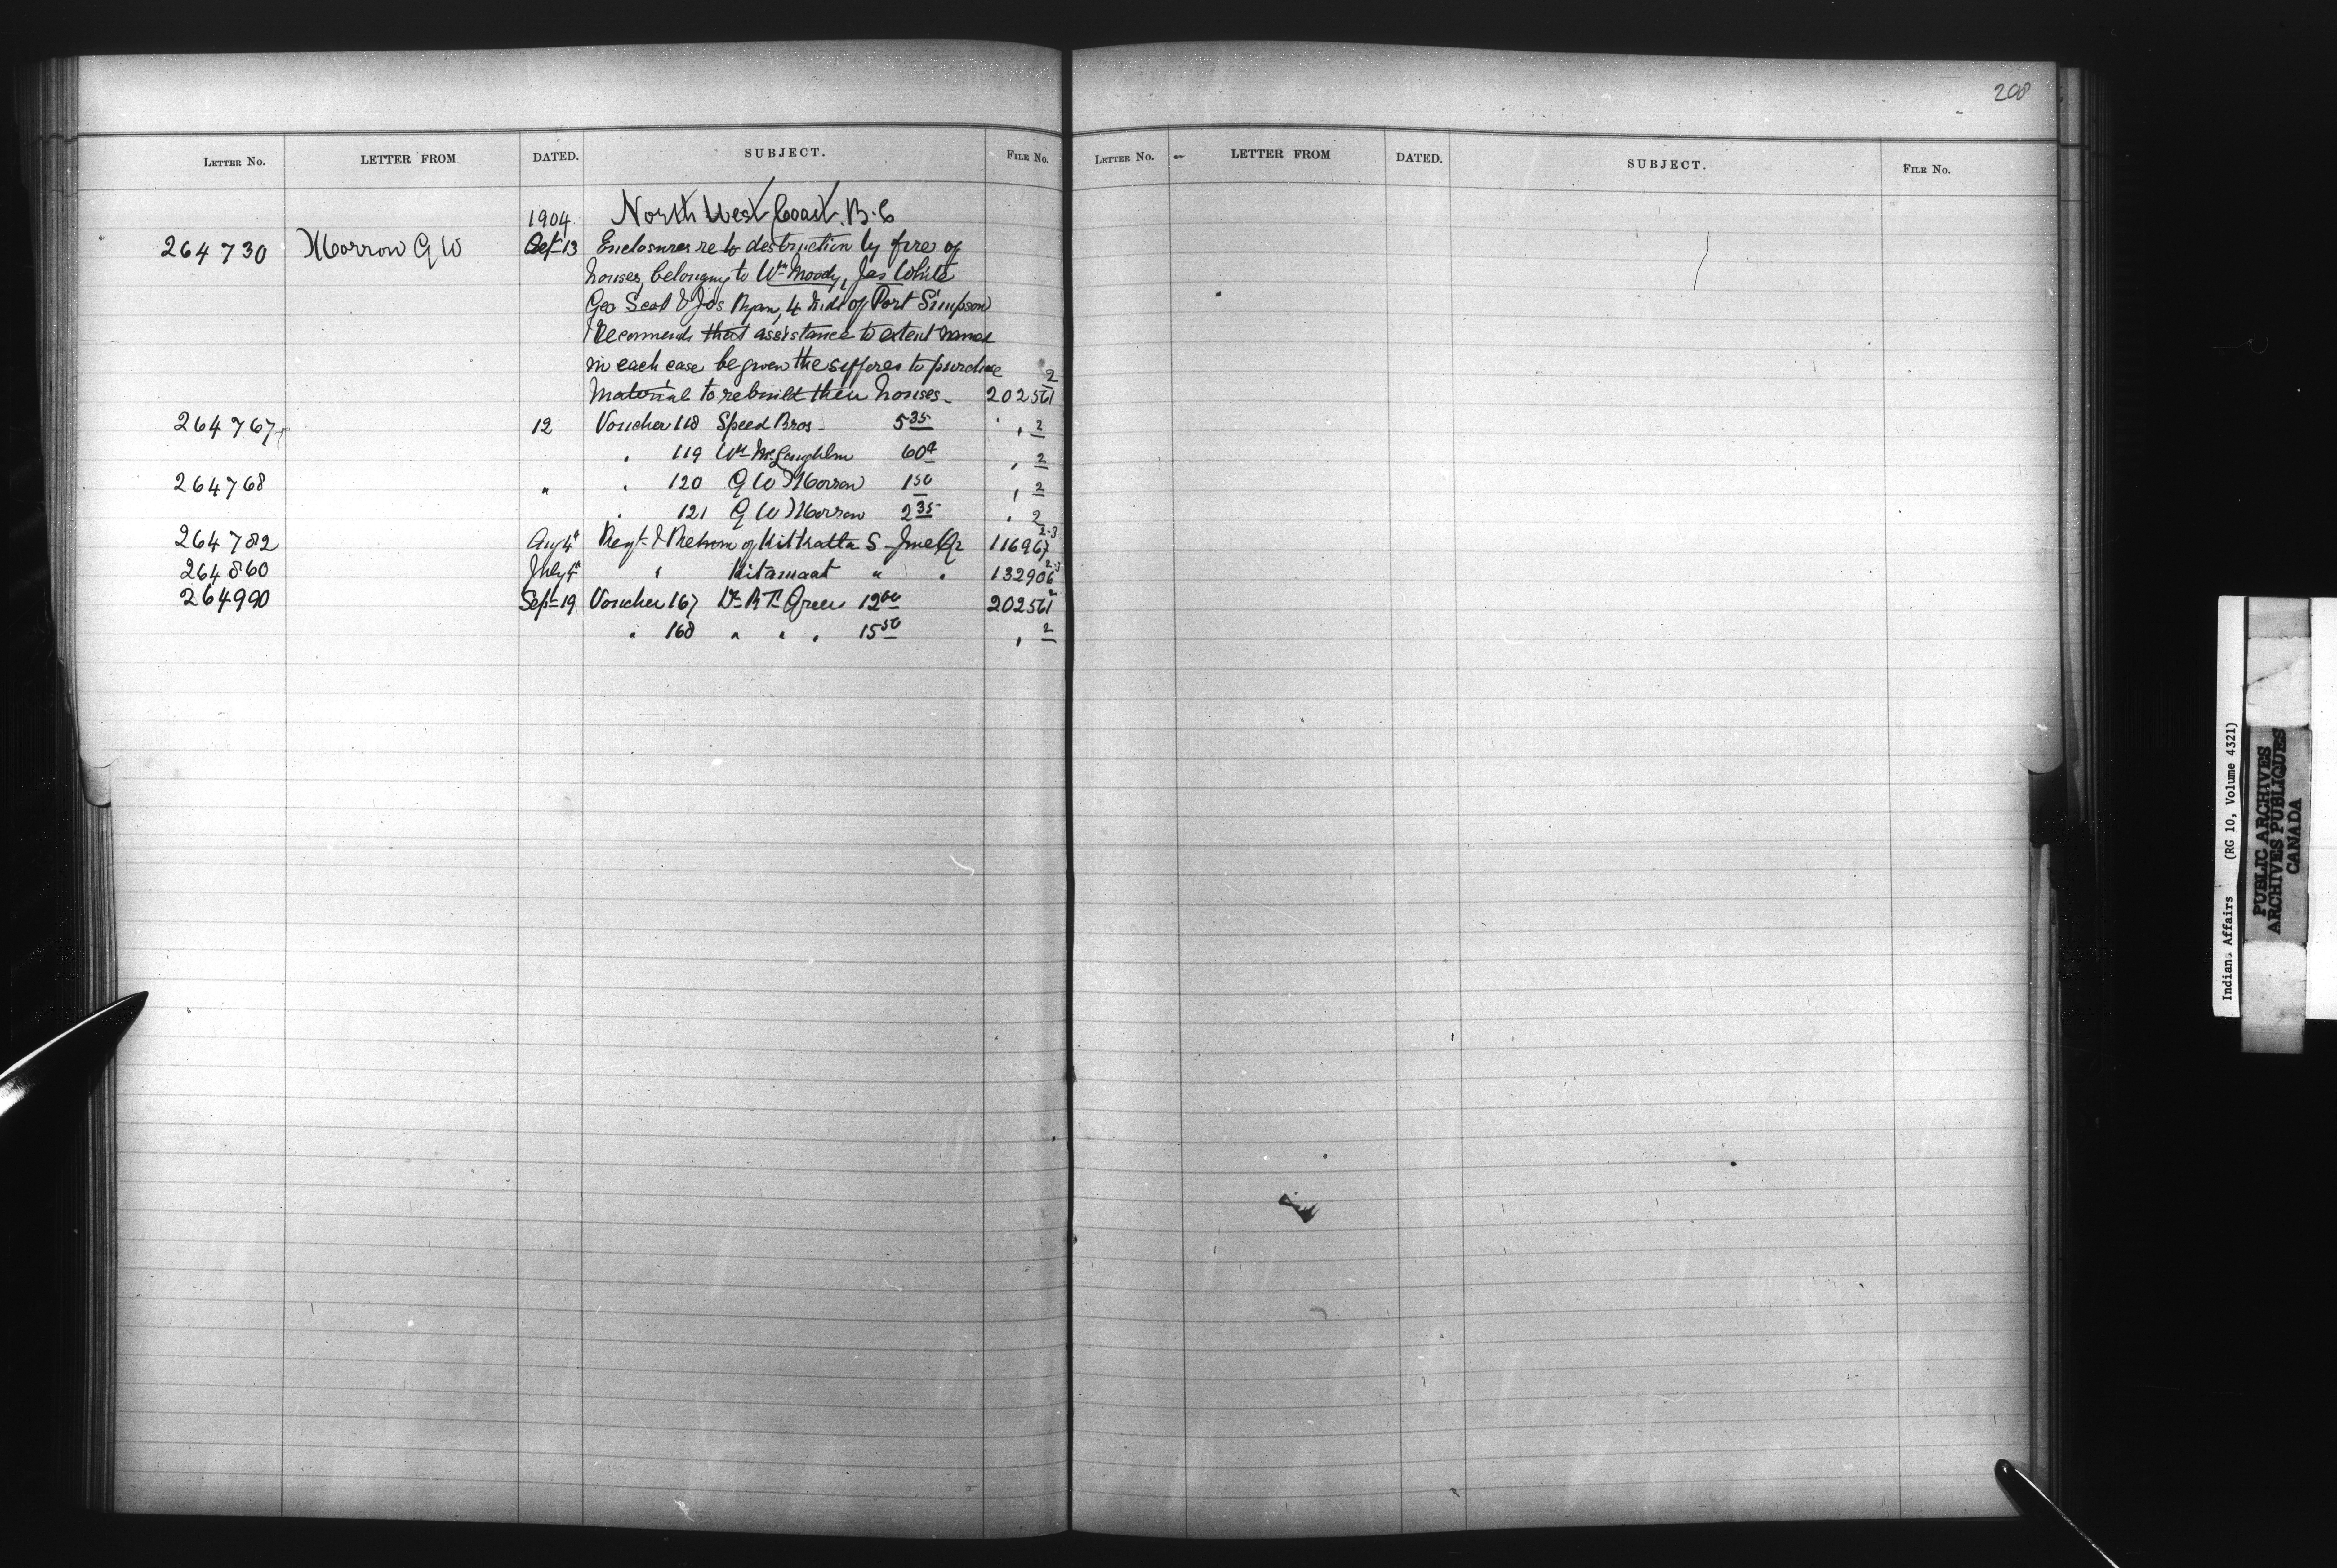 208
LETTER NO. LETTER FROM DATED. SUBJECT. FILE NO.
LETTER NO. LETTER FROM DATED. SUBJECT. FILE NO.
1904 North West Coast. B.C
264730 Morrow G W Sept 13 Enclosures re to destruction by fire of
houses, belonging to Wm Moody, Jas White
Geo Scott & Jos Ryan, 4 Inds of Port Simpson
Recommends that assistance to extent named
in each case be given the sufferes to purchase
material to rebuild their houses. 202561 2
264767 12 Voucher 118 Speed Bros. 5 35 " 2
" 119 Wm McLaughlin 60 " 2
264768 " " 120 G W Morrow 1 50 " 2
" 121 G W Morrow 2 35 " 2
264782 Aug 4 Regr & Return of Kitkatla S June Qr 116967 2-3
264860 July 4 " Kitamaat " " 132906 2-3
264990 Sept 19 Voucher 167 Dr R T Green 12 00 202561 2
" 168 " " " 15 50 " 2
Indian Affairs (RG 10, Volume 4321)
PUBLIC ARCHIVES
ARCHIVES PUBLIQUES
CANADA